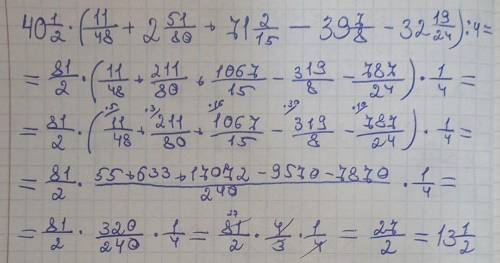 40 1/2 · (11/48 + 2 51/80 + 71 2/15 − 39 7/8 − 32 19/24) : 4 =
= 81/2 · (11/48 + 211/80 + 1067/15 − 319/8 − 787/24) · 1/4 =
= 81/2 · (11/48 ·5 + 211/80 ·3 + 1067/15 ·16 − 319/8 ·30 − 787/24 ·10) · 1/4 =
= 81/2 · (55+633+17072−9570−7870)/240 · 1/4 =
= 81/2 · 320/240 · 1/4 = 81/2 27 · 4/3 · 1/4 = 27/2 = 13 1/2